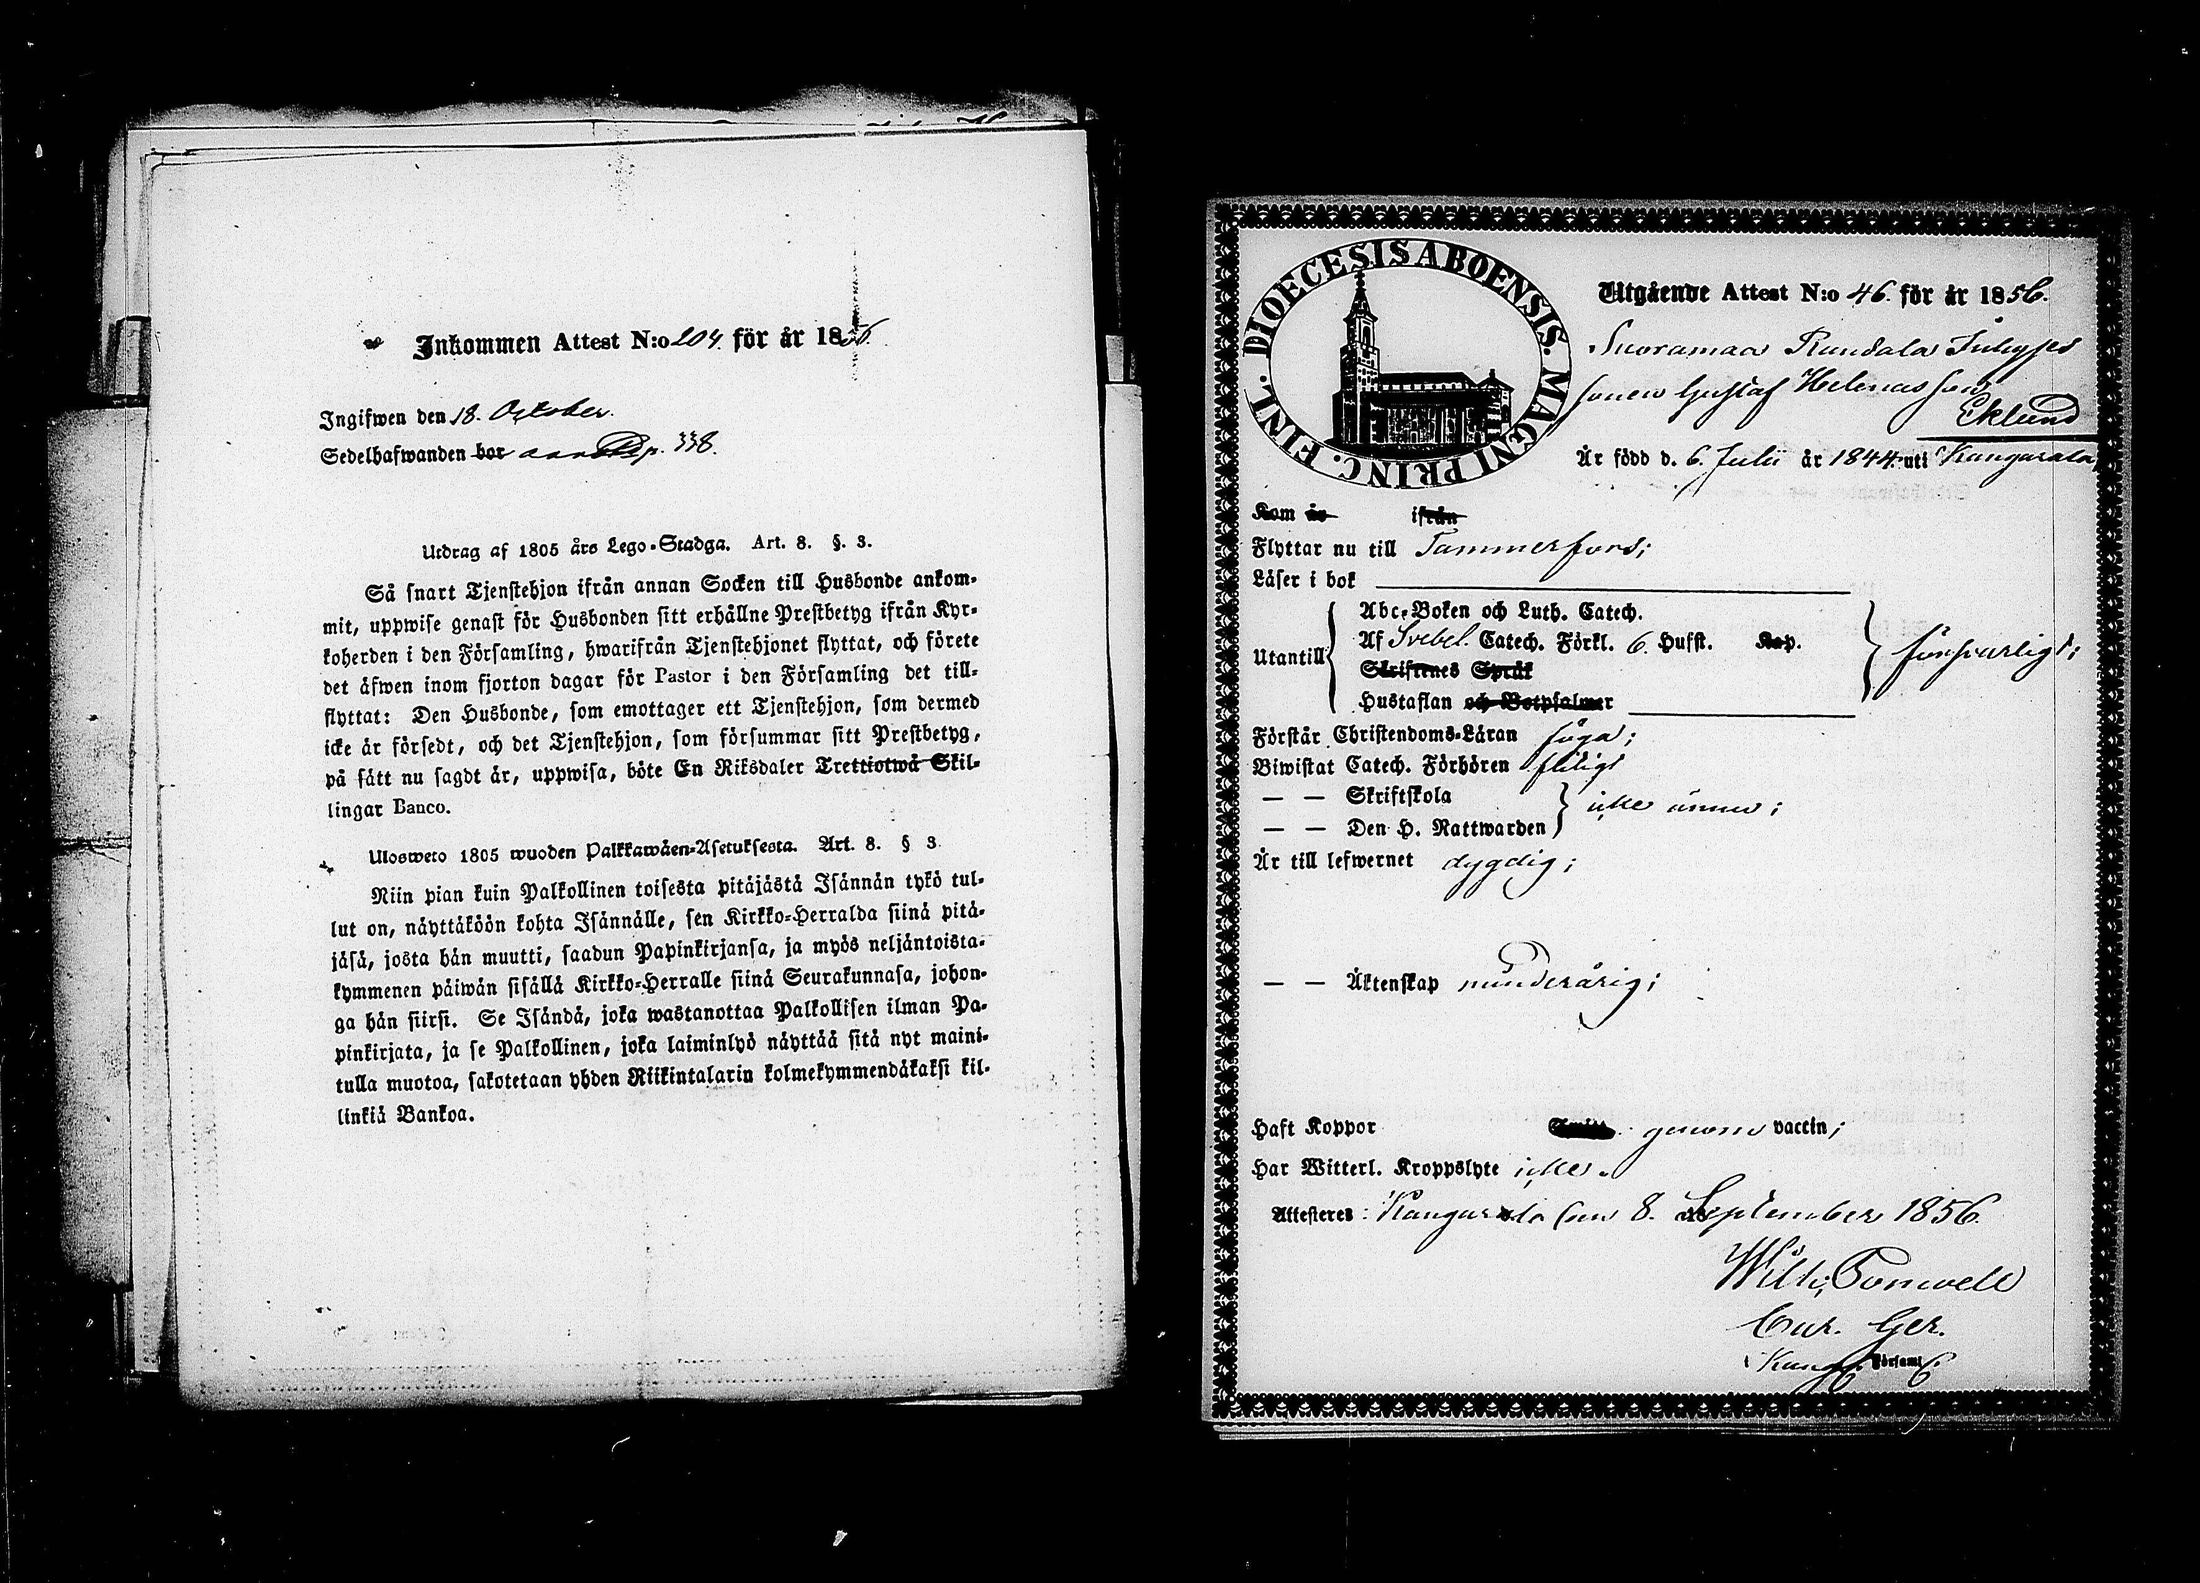 Inkommen Attest N:o 204. för år 1856.
Ingifwen den 18. October.
Sedelhafwanden bor p. 338.
Utdrag af 1805 års Lego-Stadga. Art. 8. §. 3.
Så snart Tjenstehjon ifrån annan Socken till Husbonde ankom-
mit, uppwise genast för Husbonden sitt erhållne Prestbetyg ifrån Kyr-
koherden i den Församling, hwarifrån Tjenstehjonet flyttat, och förete
det äfwen inom fjorton dagar för Pastor i den Församling det till-
flyttat: Den Husbonde, som emottager ett Tjenstehjon, som dermed
icke är försedt, och det Tjenstehjon, som försummar sitt Prestbetyg,
på sätt nu sagdt är, uppwisa, böte En Riksdaler Trettiotwå Skil-
lingar Banco.
Ulosweto 1805 wuoden Palkkawäen-Asetuksesta. Art. 8. § 3.
Niin pian kuin Palkollinen toisesta pitäjästä Isännän tykö tul-
lut on, näyttäköön kohta Isännälle, sen Kirkko-Herralda siinä pitä-
jäsä, josta hän muutti, saadun Papinkirjansa, ja myös neljäntoista-
kymmenen päiwän sisällä Kirkko-Herralle siinä Seurakunnasa, johon-
ga hän siirsi. Se Isändä, joka wastanottaa Palkollisen ilman Pa-
pinkirjata, ja se Palkollinen, joka laiminlyö näyttää sitä nyt maini-
tulla muotoa, sakotetaan yhden Riikintalarin kolmekymmendäkaksi kil-
linkiä Bankoa.
DIOECESIS ABOENSIS. MAGNI PRINC. FINL.
Utgående Attest N:o 46. för år 1856.
Suoramaa Rundala Inhyses
sonen Gustaf Helenas son
Eklund
Är född d. 6. Julii år 1844. uti Kangasala
Kom år ifrån
Flyttar nu till Tammerfors;
Läser i bok
Utantill
Abc-Boken och Luth. Catech.
Af Svebel. Catech. Förkl. 6. Hufst. Kap.
Skriftenes Språk
Hustaflan och Botpsalmer
försvarligt;
Förstår Christendoms-Läran föga;
Biwistat Catech. Förhören flitigt
— — Skriftskola
— — Den H. Nattwarden
icke ännu;
Är till lefwernet dygdig;
— — Äktenskap minderårig;
Haft Koppor genom vaccin;
Har Witterl. Kroppslyte icke.
Attesteres: Kangasala den 8. September 1856.
Wilh. Forswell
Cur. Ger.
Kang. Förs